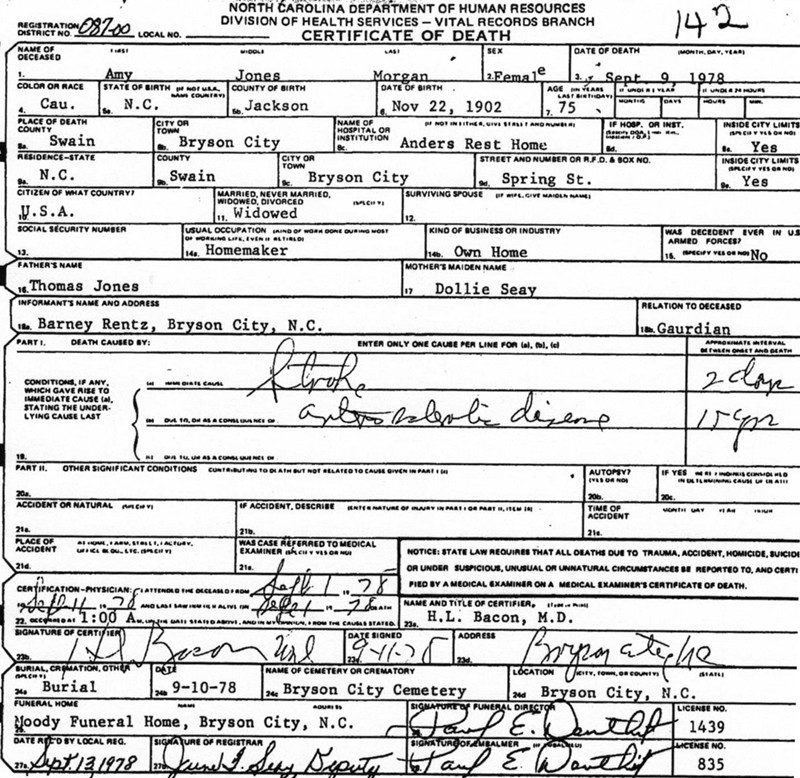 NORTH CAROLINA DEPARTMENT OF HUMAN RESOURCES
DIVISION OF HEALTH SERVICES – VITAL RECORDS BRANCH
CERTIFICATE OF DEATH
142
REGISTRATION DISTRICT NO. 087-00 LOCAL NO.
NAME OF DECEASED FIRST MIDDLE LAST SEX DATE OF DEATH (MONTH, DAY, YEAR)
1. Amy Jones Morgan 2. Female 3. Sept. 9, 1978
COLOR OR RACE STATE OF BIRTH (IF NOT U.S.A., NAME COUNTRY) COUNTY OF BIRTH DATE OF BIRTH AGE (IN YEARS LAST BIRTHDAY) IF UNDER 1 YEAR IF UNDER 24 HOURS
MONTHS DAYS HOURS MIN.
4. Cau. 5a. N.C. 5b. Jackson 6. Nov 22, 1902 7. 75
PLACE OF DEATH COUNTY CITY OR TOWN NAME OF HOSPITAL OR INSTITUTION (IF NOT IN EITHER, GIVE STREET AND NUMBER) IF HOSP. OR INST. INSIDE CITY LIMITS (SPECIFY YES OR NO)
8a. Swain 8b. Bryson City 8c. Anders Rest Home 8d. 8e. Yes
RESIDENCE-STATE COUNTY CITY OR TOWN STREET AND NUMBER OR R.F.D. & BOX NO. INSIDE CITY LIMITS (SPECIFY YES OR NO)
9a. N.C. 9b. Swain 9c. Bryson City 9d. Spring St. 9e. Yes
CITIZEN OF WHAT COUNTRY? MARRIED, NEVER MARRIED, WIDOWED, DIVORCED (SPECIFY) SURVIVING SPOUSE (IF WIFE, GIVE MAIDEN NAME)
10. U.S.A. 11. Widowed 12.
SOCIAL SECURITY NUMBER USUAL OCCUPATION (KIND OF WORK DONE DURING MOST OF WORKING LIFE, EVEN IF RETIRED) KIND OF BUSINESS OR INDUSTRY WAS DECEDENT EVER IN U.S. ARMED FORCES?
13. 14a. Homemaker 14b. Own Home 15. (SPECIFY YES OR NO) No
FATHER'S NAME MOTHER'S MAIDEN NAME
16. Thomas Jones 17 Dollie Seay
INFORMANT'S NAME AND ADDRESS RELATION TO DECEASED
18a. Barney Rentz, Bryson City, N.C. 18b. Gaurdian
PART I. DEATH CAUSED BY: ENTER ONLY ONE CAUSE PER LINE FOR (a), (b), (c) APPROXIMATE INTERVAL BETWEEN ONSET AND DEATH
CONDITIONS, IF ANY, WHICH GAVE RISE TO IMMEDIATE CAUSE (a), STATING THE UNDERLYING CAUSE LAST
(a) IMMEDIATE CAUSE Stroke 2 days
(b) DUE TO, OR AS A CONSEQUENCE OF disease 15 yr
19. (c) DUE TO, OR AS A CONSEQUENCE OF
PART II. OTHER SIGNIFICANT CONDITIONS CONTRIBUTING TO DEATH BUT NOT RELATED TO CAUSE GIVEN IN PART I (a) AUTOPSY? (YES OR NO) IF YES WERE FINDINGS CONSIDERED IN DETERMINING CAUSE OF DEATH
20a. 20b. 20c.
ACCIDENT OR NATURAL (SPECIFY) IF ACCIDENT, DESCRIBE (ENTER NATURE OF INJURY IN PART I OR PART II, ITEM 18) TIME OF ACCIDENT MONTH DAY YEAR HOUR
21a. 21b. 21c.
PLACE OF ACCIDENT AT HOME, FARM, STREET, FACTORY, OFFICE BLDG., ETC. (SPECIFY) WAS CASE REFERRED TO MEDICAL EXAMINER (SPECIFY YES OR NO)
21d. 21e.
NOTICE: STATE LAW REQUIRES THAT ALL DEATHS DUE TO TRAUMA, ACCIDENT, HOMICIDE, SUICIDE
OR UNDER SUSPICIOUS, UNUSUAL OR UNNATURAL CIRCUMSTANCES BE REPORTED TO, AND CERTI
FIED BY A MEDICAL EXAMINER ON A MEDICAL EXAMINER'S CERTIFICATE OF DEATH.
CERTIFICATION-PHYSICIAN: I ATTENDED THE DECEASED FROM Sept 1 19 78
Sept 11 19 78 AND LAST SAW HIM/HER ALIVE ON Sept 1 19 78 DEATH
22. OCCURRED AT 1:00 A M. ON THE DATE STATED ABOVE, AND IN MY OPINION, FROM THE CAUSES STATED.
NAME AND TITLE OF CERTIFIER, (TYPE OR PRINT)
23a. H.L. Bacon, M.D.
SIGNATURE OF CERTIFIER DATE SIGNED ADDRESS
23b. HL Bacon MD 23c. 9-11-78 23d. Bryson
BURIAL, CREMATION, OTHER (SPECIFY) DATE NAME OF CEMETERY OR CREMATORY LOCATION (CITY, TOWN, OR COUNTY) (STATE)
24a Burial 24b 9-10-78 24c Bryson City Cemetery 24d Bryson City, N.C.
FUNERAL HOME NAME ADDRESS SIGNATURE OF FUNERAL DIRECTOR LICENSE NO.
25. Moody Funeral Home, Bryson City, N.C. 26. Paul E. 1439
DATE REC'D BY LOCAL REG. SIGNATURE OF REGISTRAR SIGNATURE OF EMBALMER LICENSE NO.
27a. Sept. 13, 1978 27b. Seay Deputy Paul E. 835